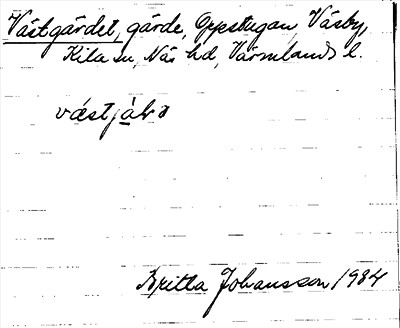 Västgärdet, gärde, Oppstugan, Väsby,
Kila sn, Näs hd, Värmlands l.
Britta Johansson 1934